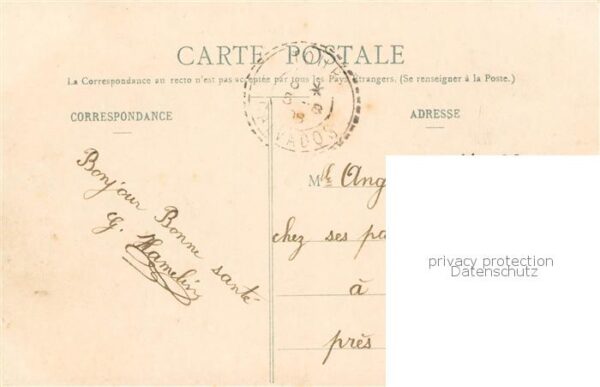 CARTE POSTALE
La Correspondance au recto n'est pas acceptée par tous les Pays étrangers. (Se renseigner à la Poste.)
CORRESPONDANCE
ADRESSE
CALVADOS
Bonjour Bonne santé
G. Hamelin
Mlle Ang
chez ses pa
à
près
privacy protection
Datenschutz